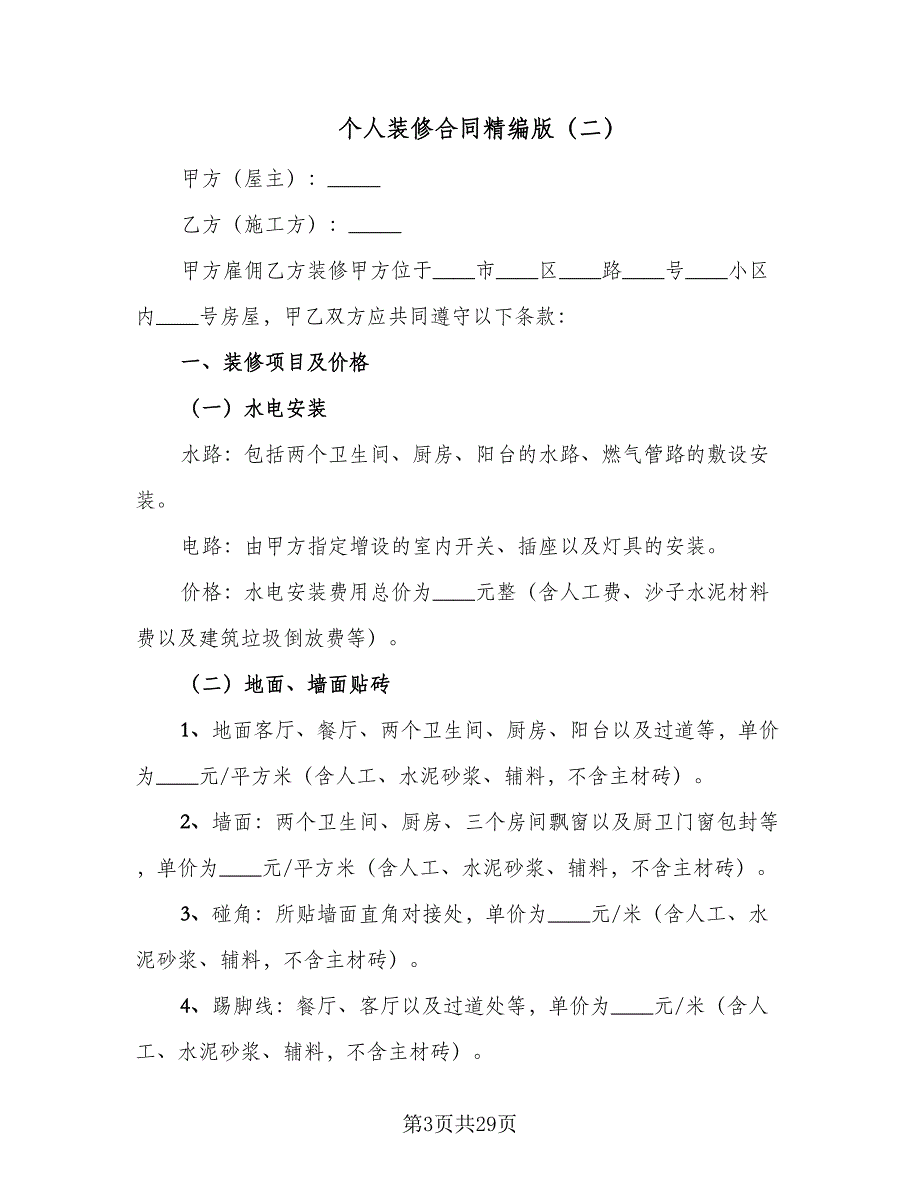 个人装修合同精编版（二）
甲方（屋主）：_____
乙方（施工方）：_____
甲方雇佣乙方装修甲方位于____市____区____路____号____小区
内____号房屋，甲乙双方应共同遵守以下条款：
一、装修项目及价格
（一）水电安装
水路：包括两个卫生间、厨房、阳台的水路、燃气管路的敷设安
装。
电路：由甲方指定增设的室内开关、插座以及灯具的安装。
价格：水电安装费用总价为____元整（含人工费、沙子水泥材料
费以及建筑垃圾倒放费等）。
（二）地面、墙面贴砖
1、地面客厅、餐厅、两个卫生间、厨房、阳台以及过道等，单价
为____元/平方米（含人工、水泥砂浆、辅料，不含主材砖）。
2、墙面：两个卫生间、厨房、三个房间飘窗以及厨卫门窗包封等
，单价为____元/平方米（含人工、水泥砂浆、辅料，不含主材砖）。
3、碰角：所贴墙面直角对接处，单价为____元/米（含人工、水
泥砂浆、辅料，不含主材砖）。
4、踢脚线：餐厅、客厅以及过道处等，单价为____元/米（含人
工、水泥砂浆、辅料，不含主材砖）。
第3页共29页